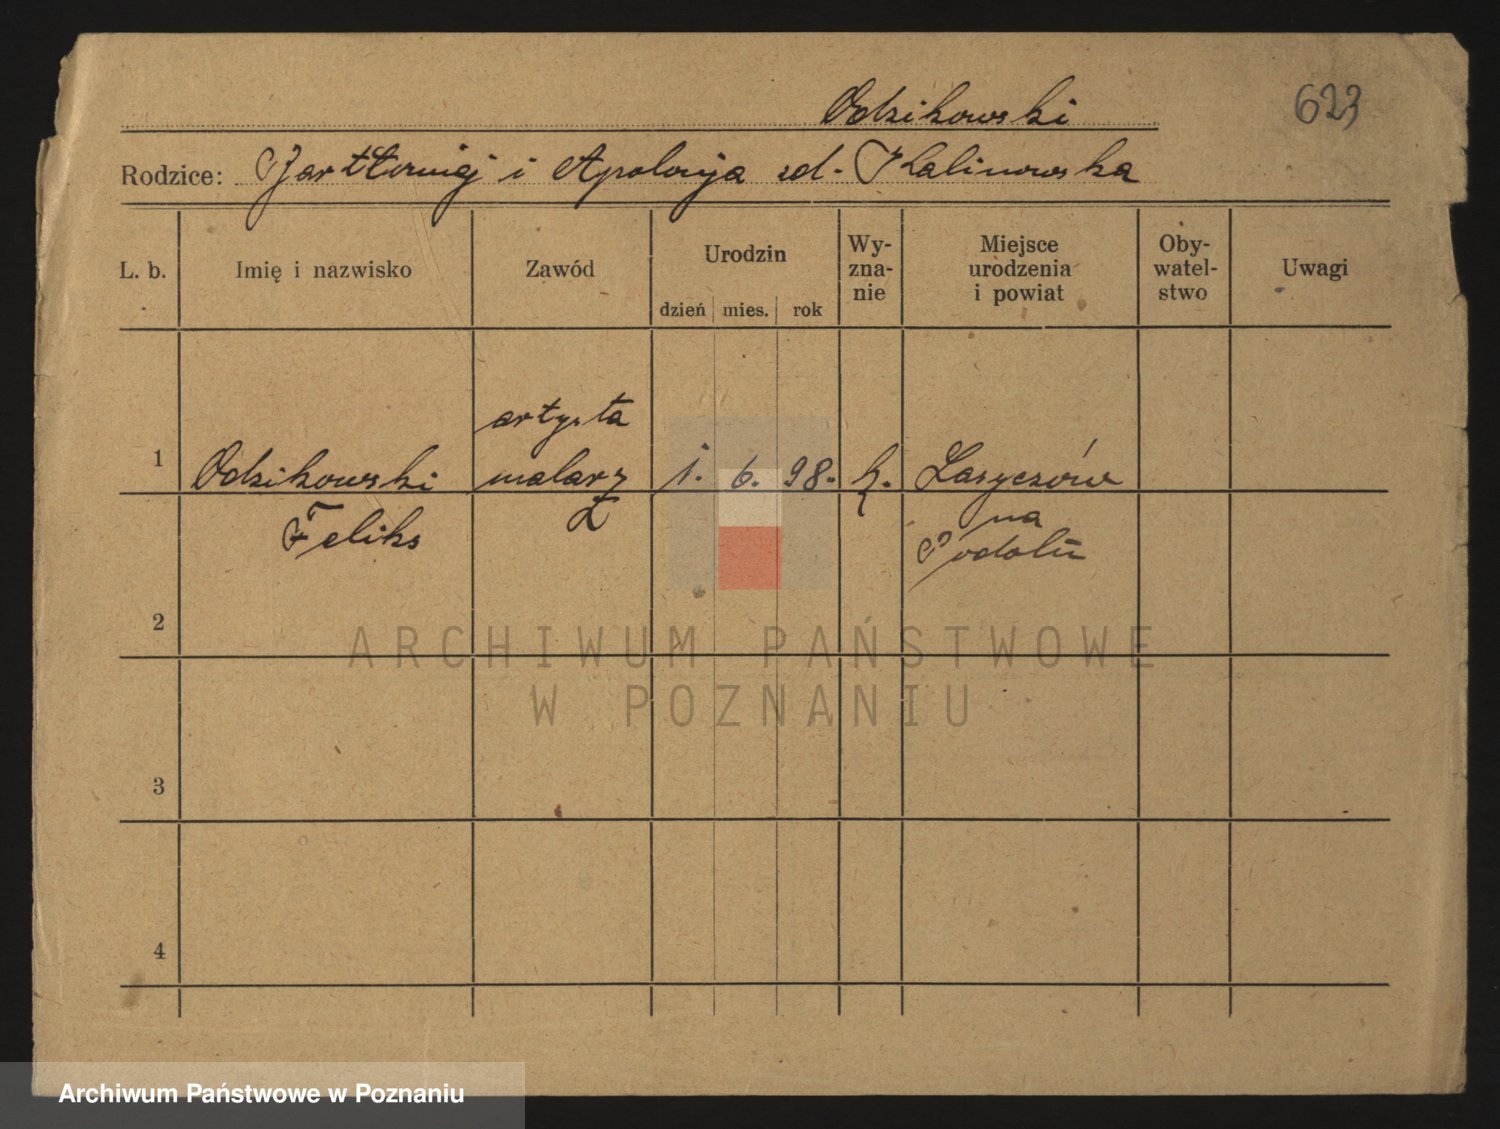 Odzikowski
623
Rodzice: Bartłomiej i Apolonja zd. Kalinowska
L. b.
Imię i nazwisko
Zawód
Urodzin
dzień mies. rok
Wy-
zna-
nie
Miejsce
urodzenia
i powiat
Oby-
watel-
stwo
Uwagi
1
Odzikowski
Feliks
artysta
malarz
1. 6. 98.
k.
Łasyczów
na
Podolu
2
3
4
ARCHIWUM PAŃSTWOWE
W POZNANIU
Archiwum Państwowe w Poznaniu